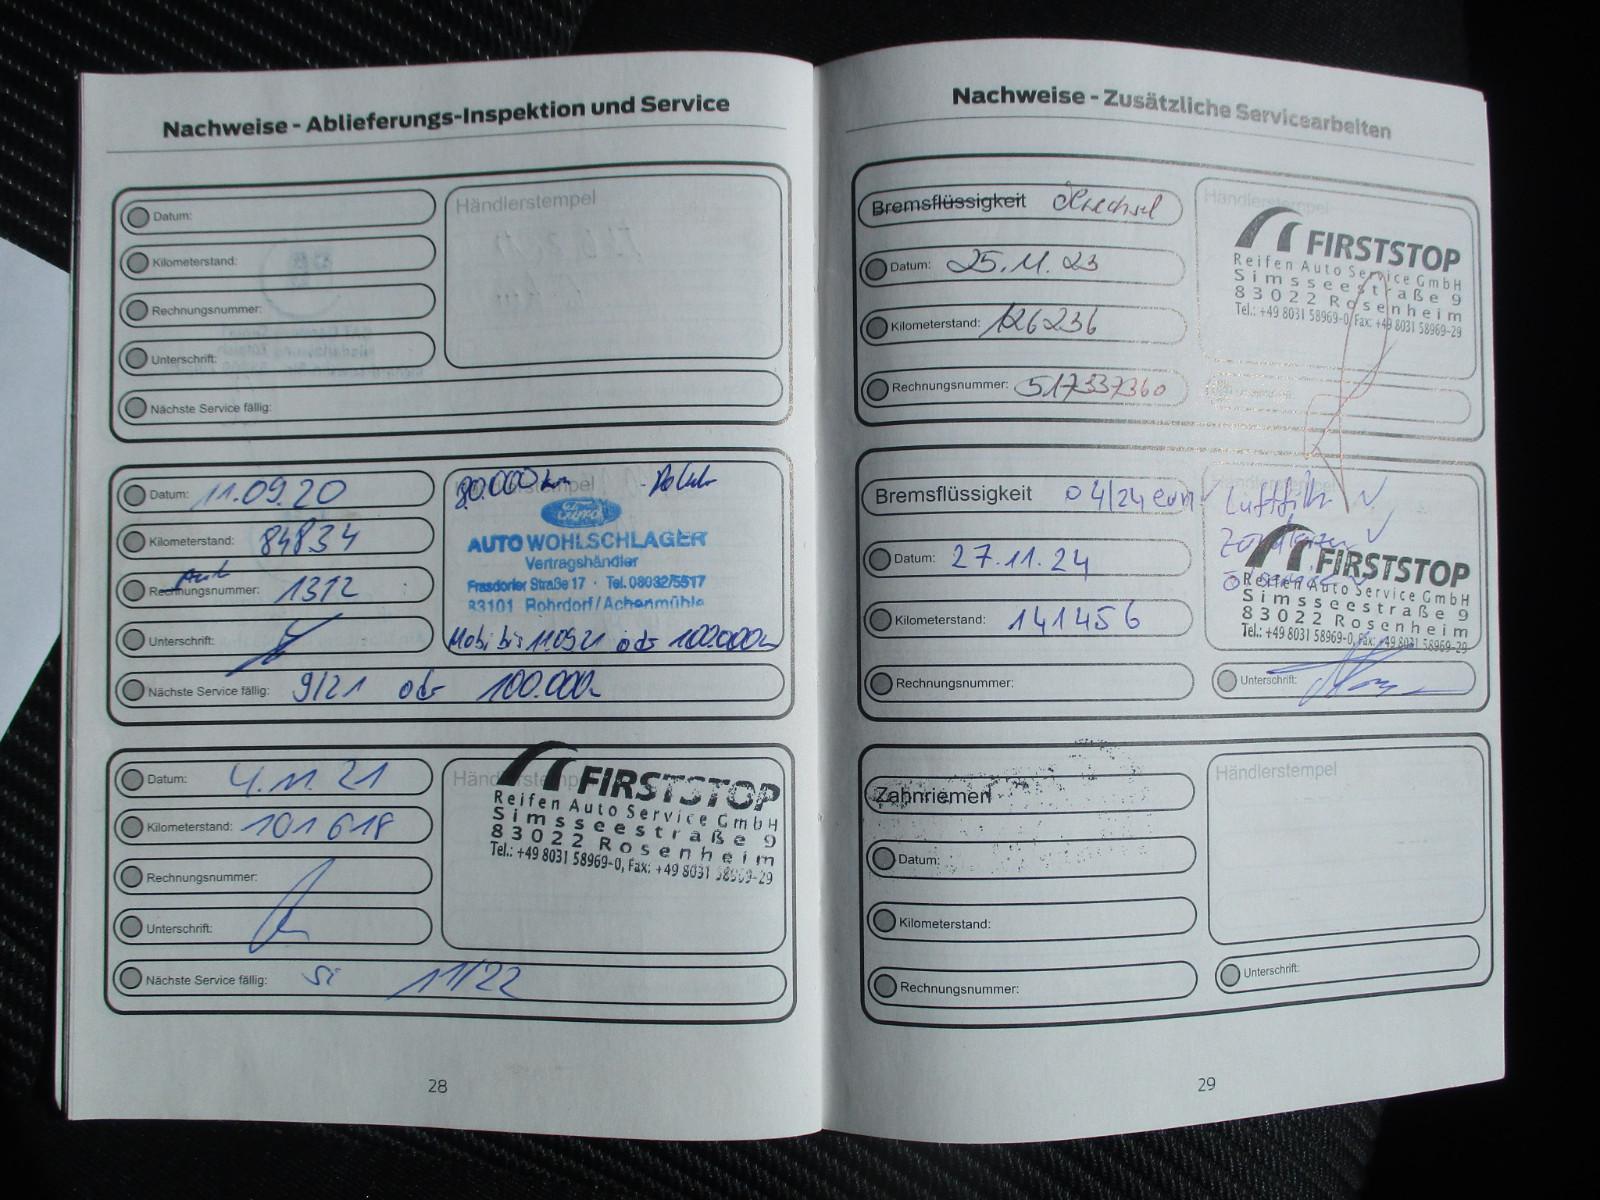 Nachweise - Ablieferungs-Inspektion und Service
Datum:
Kilometerstand:
Rechnungsnummer:
Unterschrift:
Nächste Service fällig:
Händlerstempel
Datum: 11.09.20
Kilometerstand: 84834
Rechnungsnummer: 1312
Unterschrift:
Nächste Service fällig: 9/21 odr 100.000
Händlerstempel
Ford
AUTO WOHLSCHLAGER
Vertragshändler
Frasdorfer Straße 17 · Tel. 08032/5517
83101 Rohrdorf/Achenmühle
Mobi bis 11.09.21 odr 100.000
Datum: 4.11.21
Kilometerstand: 101618
Rechnungsnummer:
Unterschrift:
Nächste Service fällig: Si 11/22
Händlerstempel
FIRSTSTOP
Reifen Auto Service GmbH
Simsseestraße 9
83022 Rosenheim
Tel.: +49 8031 58969-0, Fax: +49 8031 58969-29
28
Nachweise - Zusätzliche Servicearbeiten
Bremsflüssigkeit
Datum: 25.11.23
Kilometerstand: 126236
Rechnungsnummer: 517337360
Händlerstempel
FIRSTSTOP
Reifen Auto Service GmbH
Simsseestraße 9
83022 Rosenheim
Tel.: +49 8031 58969-0, Fax: +49 8031 58969-29
Bremsflüssigkeit 04/24
Datum: 27.11.24
Kilometerstand: 141456
Rechnungsnummer:
Händlerstempel
Luftfilter ✓
FIRSTSTOP
Reifen Auto Service GmbH
Simsseestraße 9
83022 Rosenheim
Tel.: +49 8031 58969-0, Fax: +49 8031 58969-29
Unterschrift:
Zahnriemen
Datum:
Kilometerstand:
Rechnungsnummer:
Händlerstempel
Unterschrift:
29